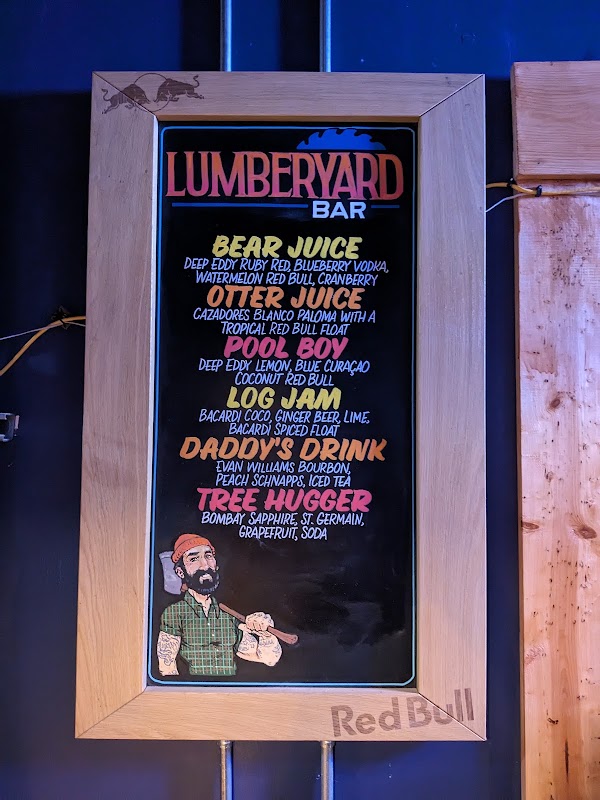 LUMBERYARD
BAR
BEAR JUICE
DEEP EDDY RUBY RED, BLUEBERRY VODKA,
WATERMELON RED BULL, CRANBERRY
OTTER JUICE
CAZADORES BLANCO PALOMA WITH A
TROPICAL RED BULL FLOAT
POOL BOY
DEEP EDDY LEMON, BLUE CURAÇAO
COCONUT RED BULL
LOG JAM
BACARDI COCO, GINGER BEER, LIME,
BACARDI SPICED FLOAT
DADDY'S DRINK
EVAN WILLIAMS BOURBON,
PEACH SCHNAPPS, ICED TEA
TREE HUGGER
BOMBAY SAPPHIRE, ST. GERMAIN,
GRAPEFRUIT, SODA
Red Bull